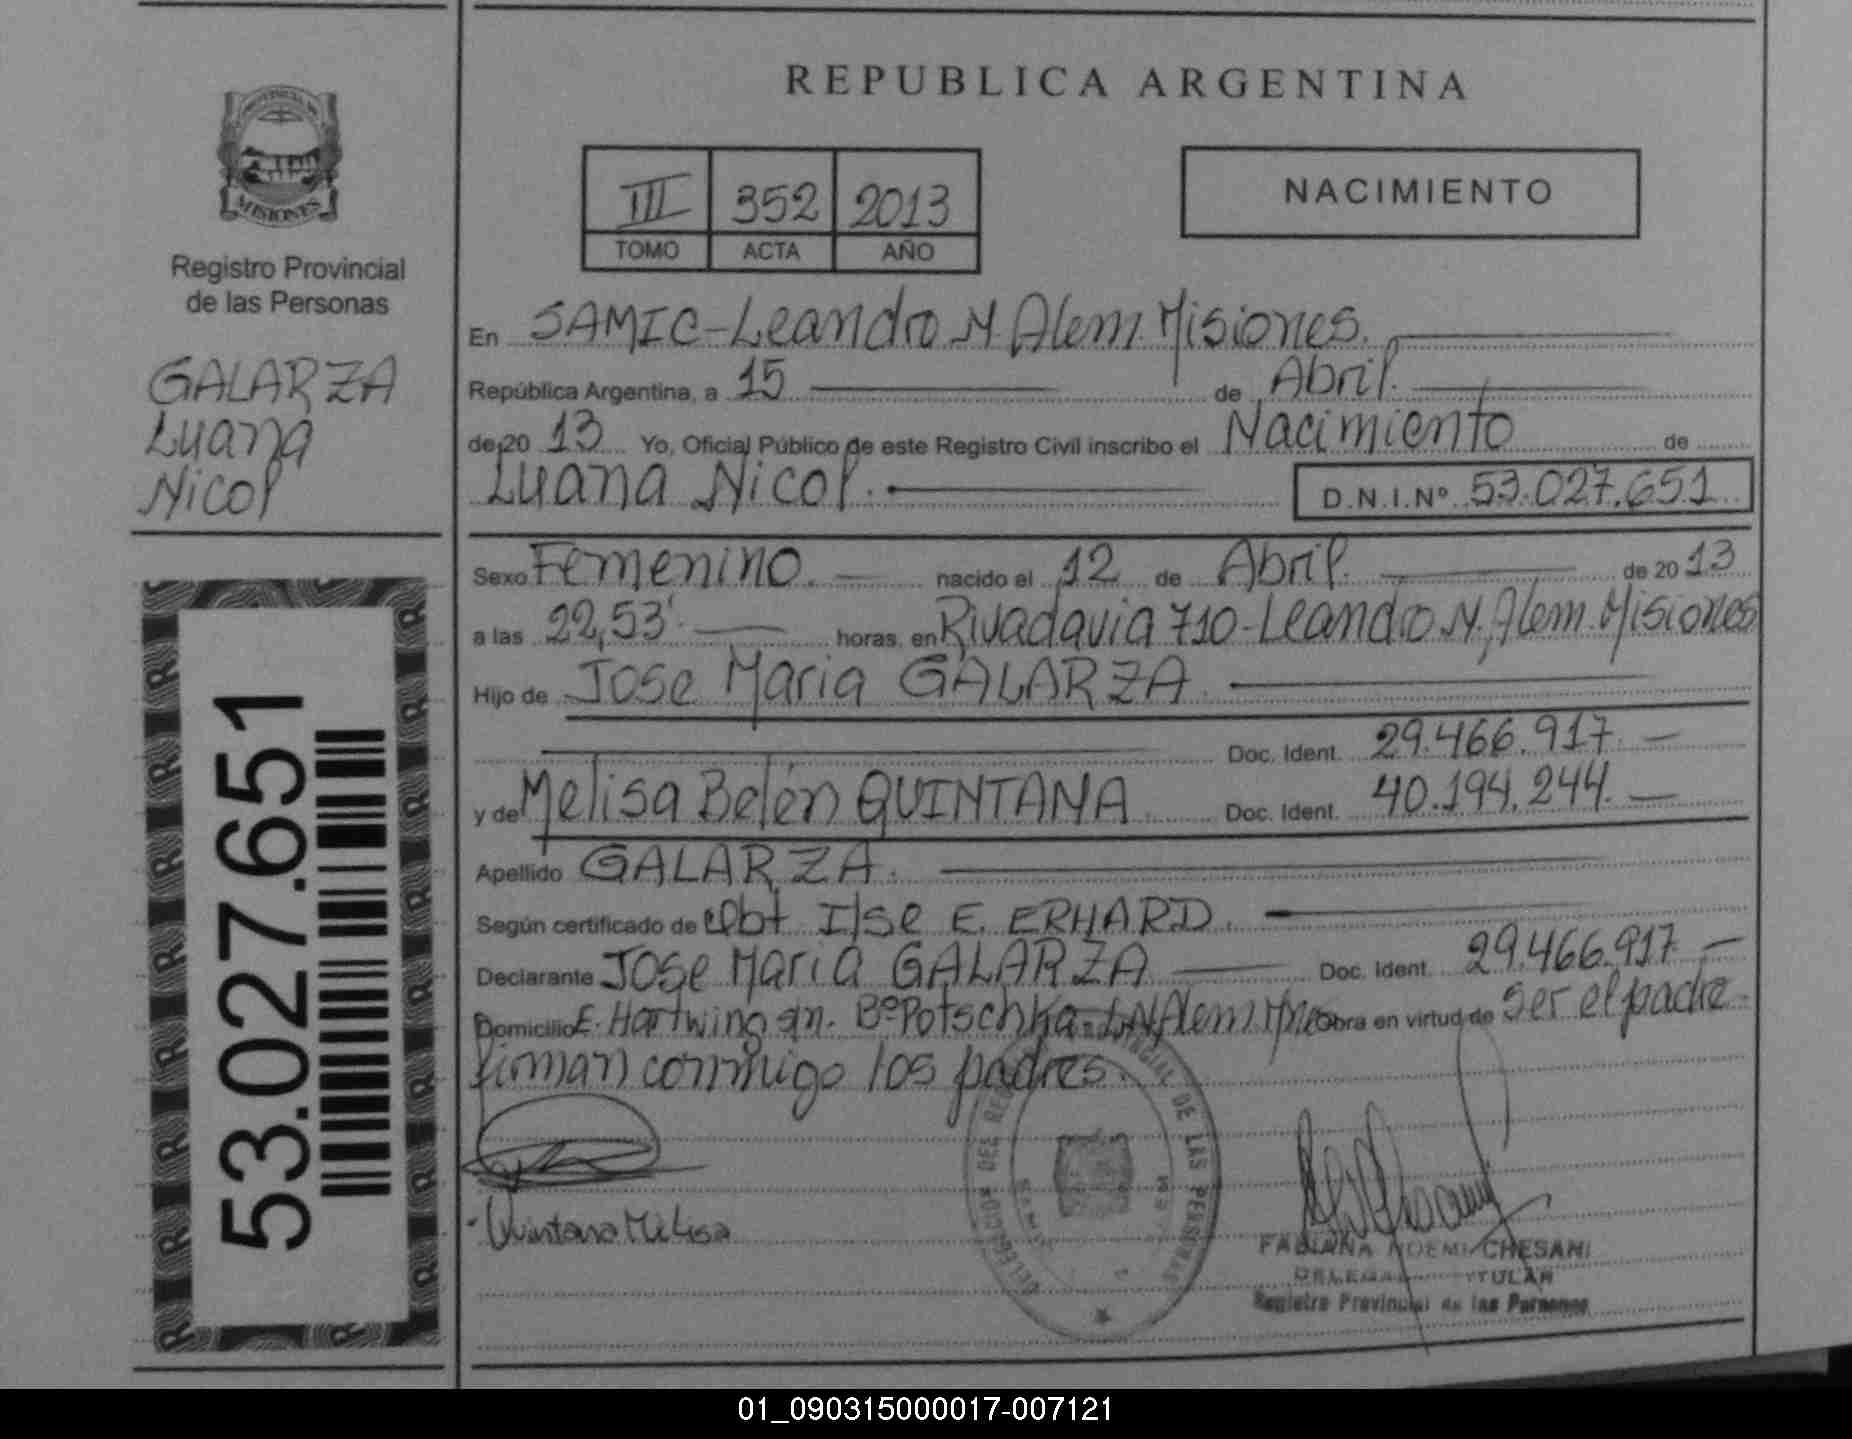 REPUBLICA ARGENTINA
PROVINCIA DE
MISIONES
Registro Provincial
de las Personas
GALARZA
Luana
Nicol
III 352 2013
TOMO ACTA AÑO
NACIMIENTO
En SAMIC-Leandro N. Alem. Misiones.
República Argentina, a 15 de Abril.
de 20 13 Yo, Oficial Público de este Registro Civil inscribo el Nacimiento de
Luana Nicol. D.N.I.Nº 53.027.651
Sexo Femenino. nacido el 12 de Abril. de 20 13
a las 22,53' horas, en Rivadavia 710-Leandro N. Alem. Misiones
Hijo de Jose Maria GALARZA.
Doc. Ident. 29.466.917.
y de Melisa Belén QUINTANA. Doc. Ident. 40.194.244.
Apellido GALARZA.
Según certificado de Obt Ilse E. ERHARD.
Declarante Jose Maria GALARZA Doc. Ident. 29.466.917
Domicilio E. Hartwing sn. Bº Potschka-L.N.Alem Mnes Obra en virtud de ser el padre
firman conmigo los padres.
Quintana Melisa
DELEGACION DEL REGISTRO PROVINCIAL DE LAS PERSONAS
FABIANA NOEMI CHESANI
DELEGADA TITULAR
Registro Provincial de las Personas
53.027.651
01_090315000017-007121